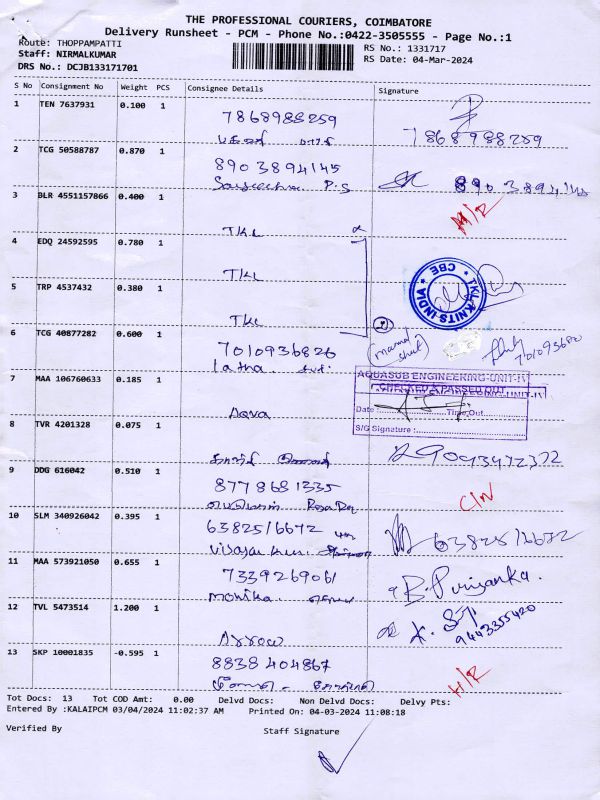 THE PROFESSIONAL COURIERS, COIMBATORE
Delivery Runsheet - PCM - Phone No.:0422-3505555 - Page No.:1
Route: THOPPAMPATTI
Staff: NIRMALKUMAR
DRS No.: DCJB133171701
RS No.: 1331717
RS Date: 04-Mar-2024
S No Consignment No Weight PCS Consignee Details Signature
1 TEN 7637931 0.100 1
7868988259
7868988259
2 TCG 50588787 0.870 1
8903894145
P.S
3 BLR 4551157866 0.400 1
TKL
4 EDQ 24592595 0.780 1
TKL
CBE
TKL KNITS INDIA
5 TRP 4537432 0.380 1
TKL
6 TCG 40877282 0.600 1
7010936826
latha
7 MAA 106760633 0.185 1
AQUASUB ENGINEERING-UNIT-IV
CHECKED & PASSED OUT
Date : Time Out
S/G Signature :
Aqva
8 TVR 4201328 0.075 1
9 DDG 616042 0.510 1
8778681335
10 SLM 340926042 0.395 1
6382516672
6382516672
11 MAA 573921050 0.655 1
7339269061
Monika
B. Puriyanka.
12 TVL 5473514 1.200 1
Arrow
9443355420
13 SKP 10001835 -0.595 1
8838404867
Tot Docs: 13 Tot COD Amt: 0.00 Delvd Docs: Non Delvd Docs: Delvy Pts:
Entered By :KALAIPCM 03/04/2024 11:02:37 AM Printed On: 04-03-2024 11:08:18
Verified By Staff Signature